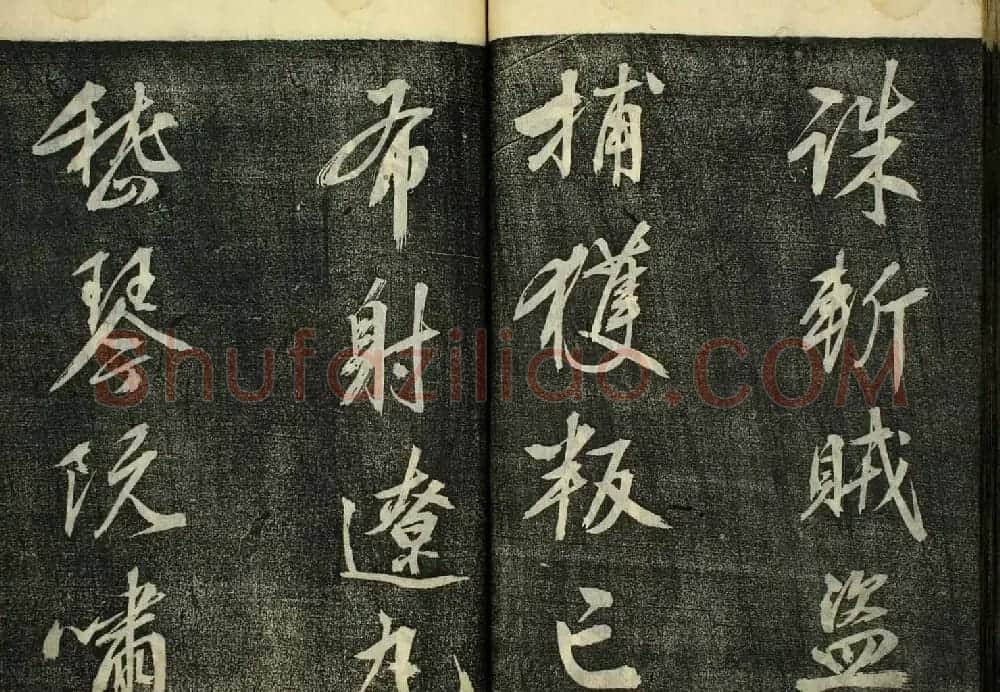 誅斬賊盜
捕獲叛亡
布射遼丸
嵇琴阮嘯
Shufaziliao.COM